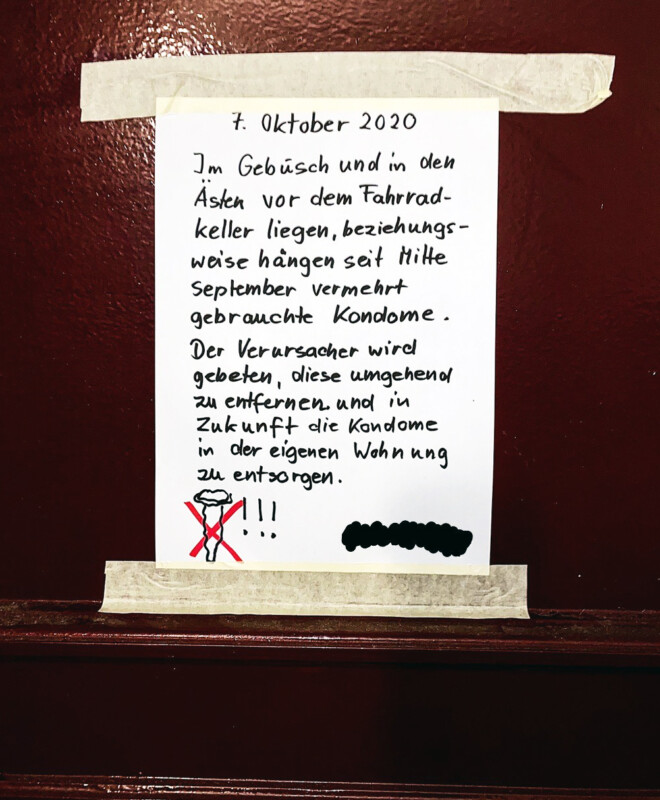 7. Oktober 2020
Im Gebüsch und in den
Ästen vor dem Fahrrad-
keller liegen, beziehungs-
weise hängen seit Mitte
September vermehrt
gebrauchte Kondome.
Der Verursacher wird
gebeten, diese umgehend
zu entfernen und in
Zukunft die Kondome
in der eigenen Wohnung
zu entsorgen.
!!!